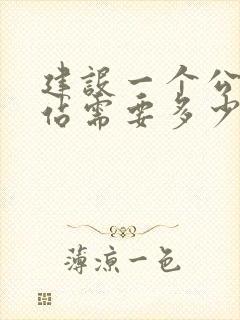 建設一个公
佔需要多少
薄凉一色